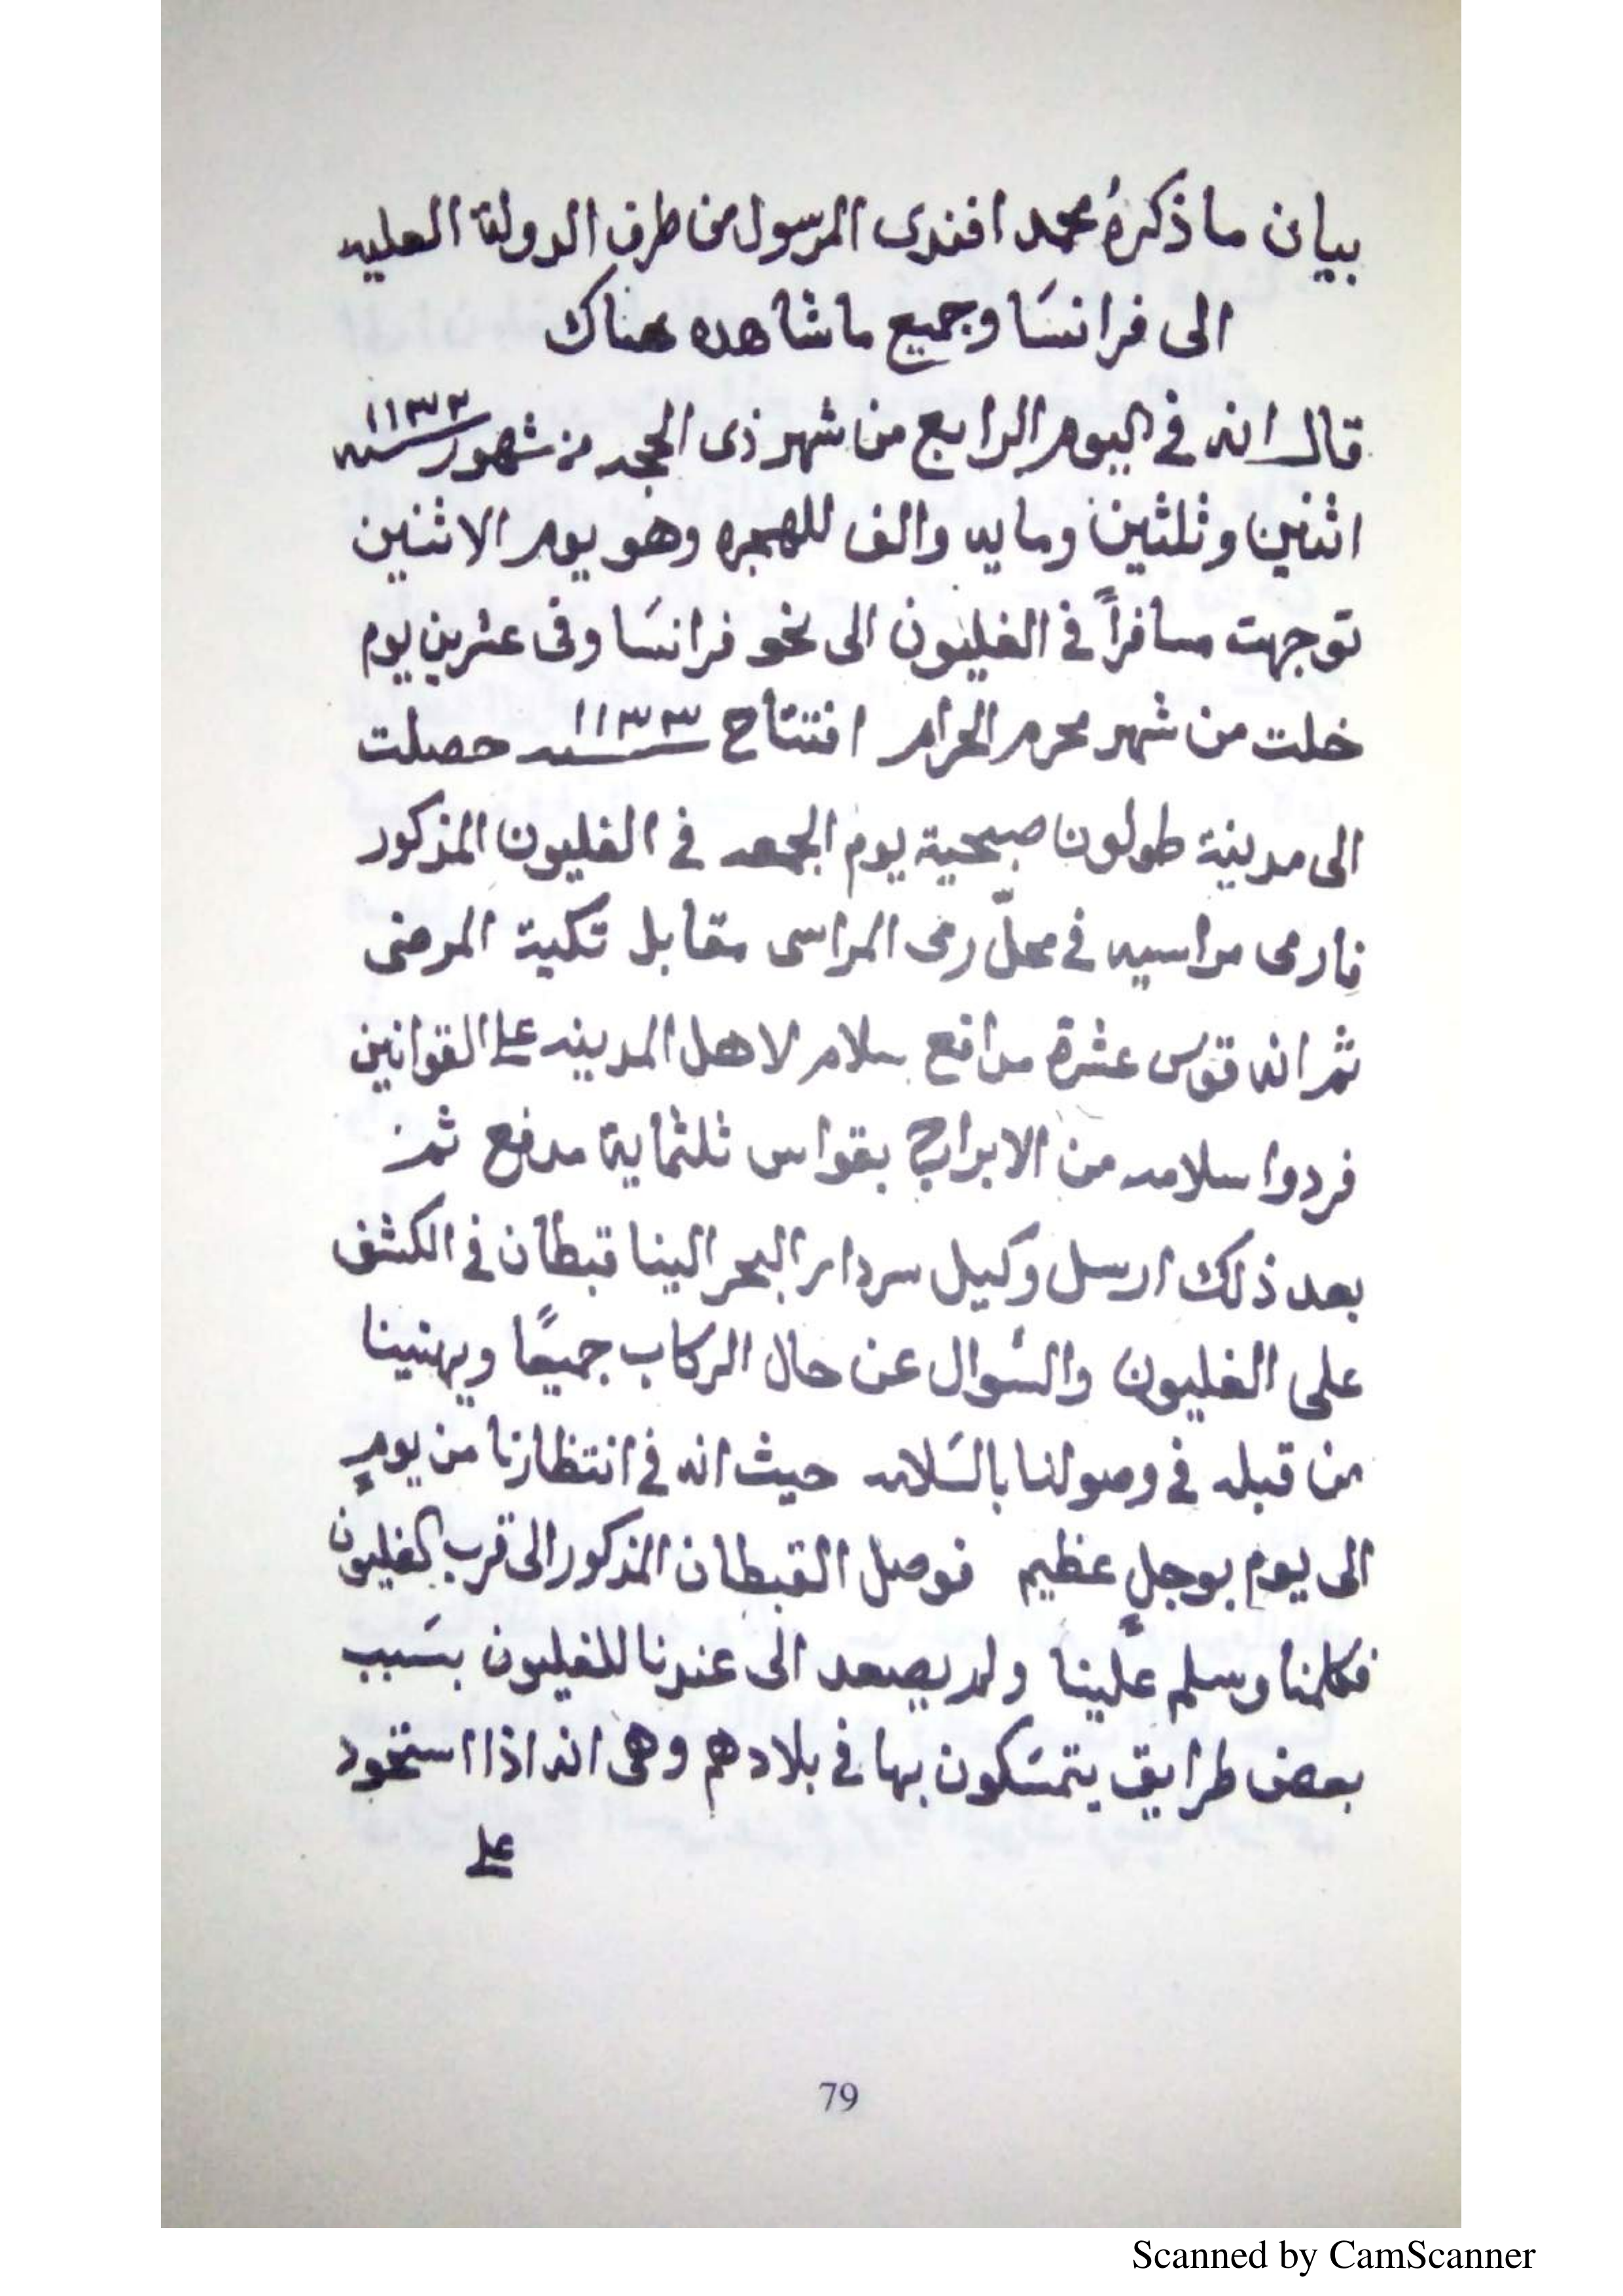 بيان ما ذكرهُ محمد افندى المرسول من طرف الدولة العليه
الى فرانسَا وجميع ما شاهده هناك
قال انه في اليوم الرابع من شهر ذى الحجه من شهور سنه ١١٣٣
اثنين وثلثين ومايه والف للهجره وهو يوم الاثنين
توجهت مسافراً في الغليون الى نحو فرانسَا وفى عشرين يوم
خلت من شهر محرم الحرام افتتاح سنه ١١٣٣ حصلت
الى مدينة طولون صبحية يوم الجمعه في الغليون المذكور
فارمى مراسيه في محلّ رمى المراسى مقابل تكية المرضى
ثم انه قوّس عشرة مدافع سلام لاهل المدينه على القوانين
فردوا سلامه من الابراج بقواس ثلثماية مدفع ثم
بعد ذلك ارسل وكيل سردار البحر الينا قبطان في الكشف
على الغليون والسُوال عن حال الركاب جميعًا ويهنينا
من قبله في وصولنا بالسَلامه حيث انه في انتظارنا من يومٍ
الى يوم بوجلٍ عظيم فوصل القبطان المذكور الى قرب الغليون
فكلمنا وسلم علينا ولم يصعد الى عندنا للغليون بسَبب
بعض طرايق يتمسَكون بها في بلادهم وهى انه اذا استخود
على
79
Scanned by CamScanner